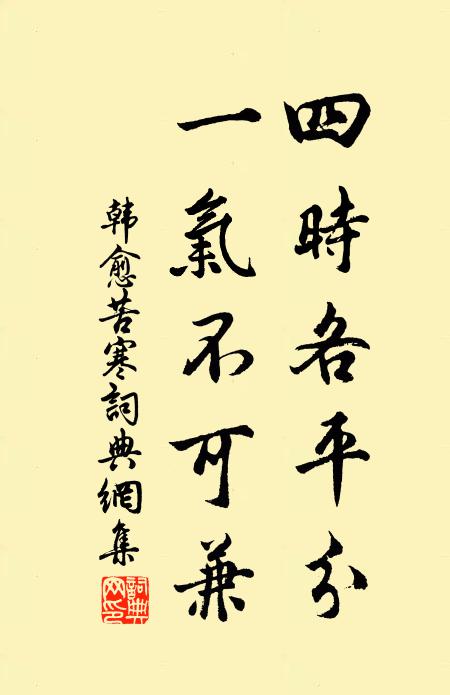 四時各平分
一氣不可兼
韩愈苦寒詞典網集
詞典